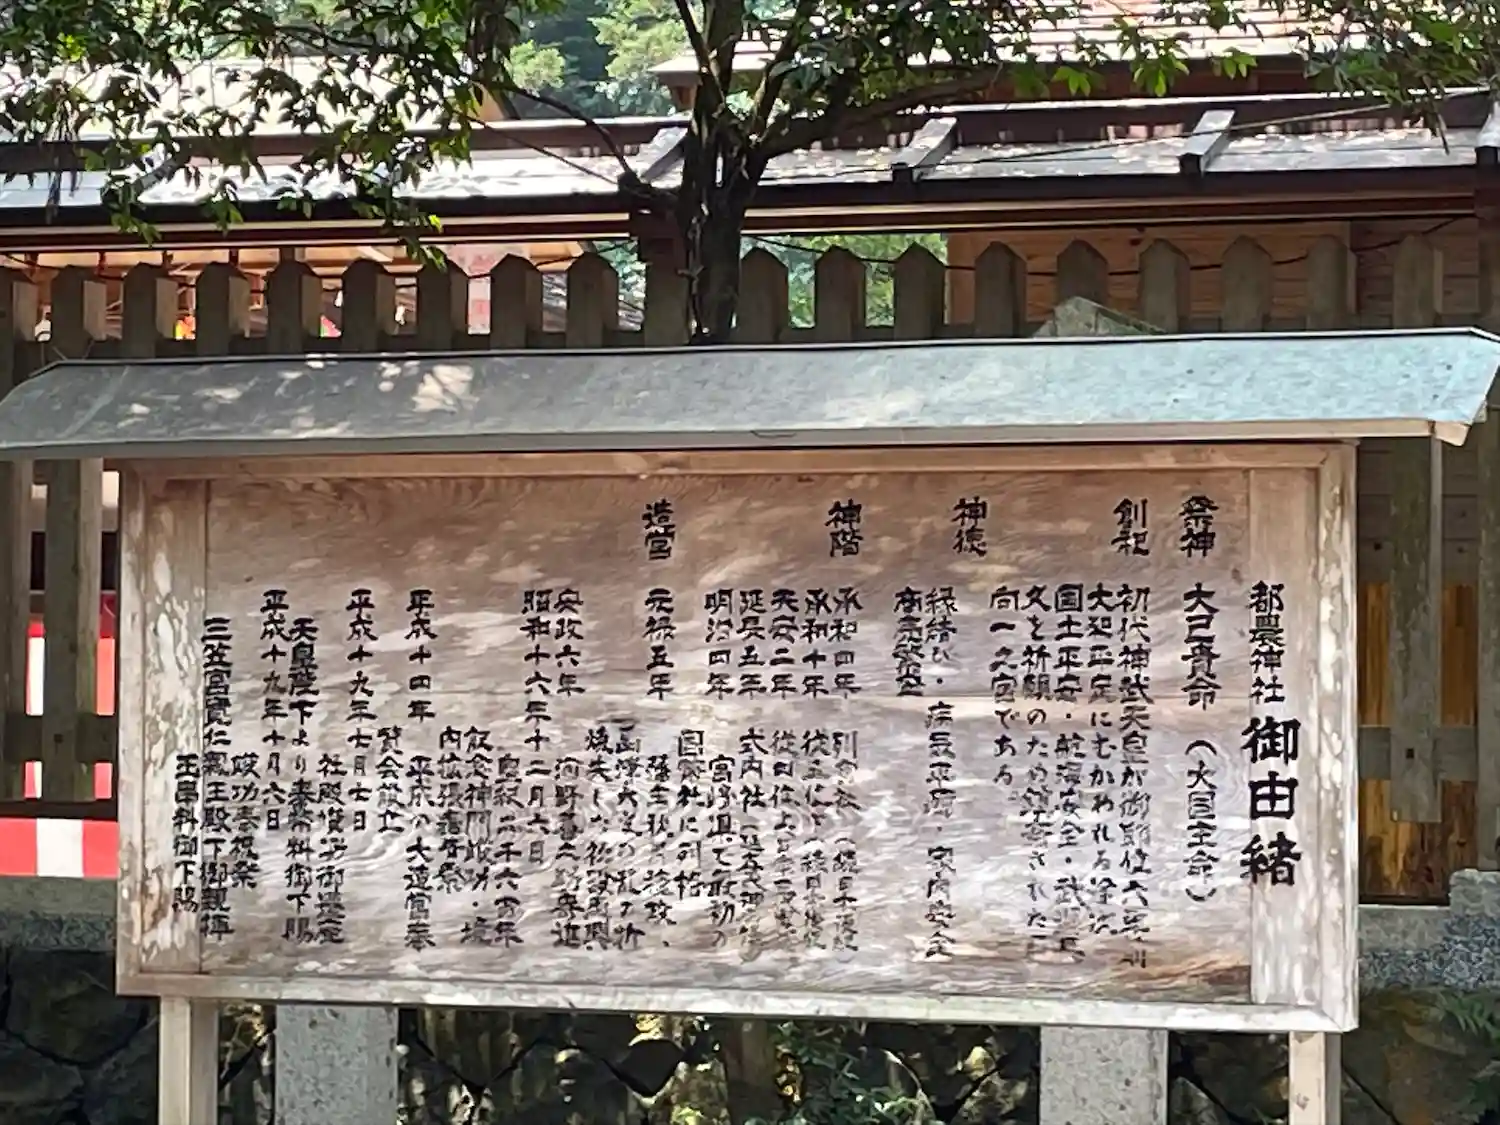 都農神社 御由緒
祭神 大己貴命(大国主命)
創祀 初代神武天皇が御即位六年前
大和平定にむかわれる途次
国土平安・航海安全・武運長
久を祈願のため鎮斎された
向一之宮である
神徳 縁結び・病気平癒・家内安全
商売繁盛
神階 承和四年 列官社(続日本後紀
承和十年 従五位下(続日本後紀
天安二年 従四位上
延長五年 式内社(延喜式神名帳
明治四年 宮崎県で最初の
国幣社に列格
造営 元禄五年
焼失した社殿再興
安政六年
昭和十六年十二月六日
皇紀二千六百年
記念神門竣功・境
内拡張奉告祭
平成十四年 平成の大造営奉
賛会設立
平成十九年七月七日
社殿竣功御遷座
天皇陛下より幣帛料御下賜
平成十九年十月六日
竣功奉祝祭
三笠宮寬仁親王殿下御親拝
玉串料御下賜